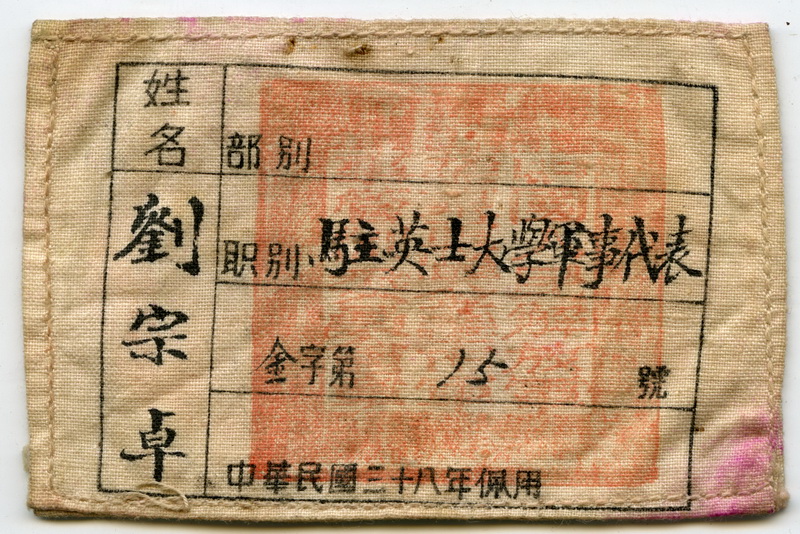 姓名
劉宗卓
部别
职别 駐英士大學軍事代表
金字第 15 號
中華民國三十八年佩用